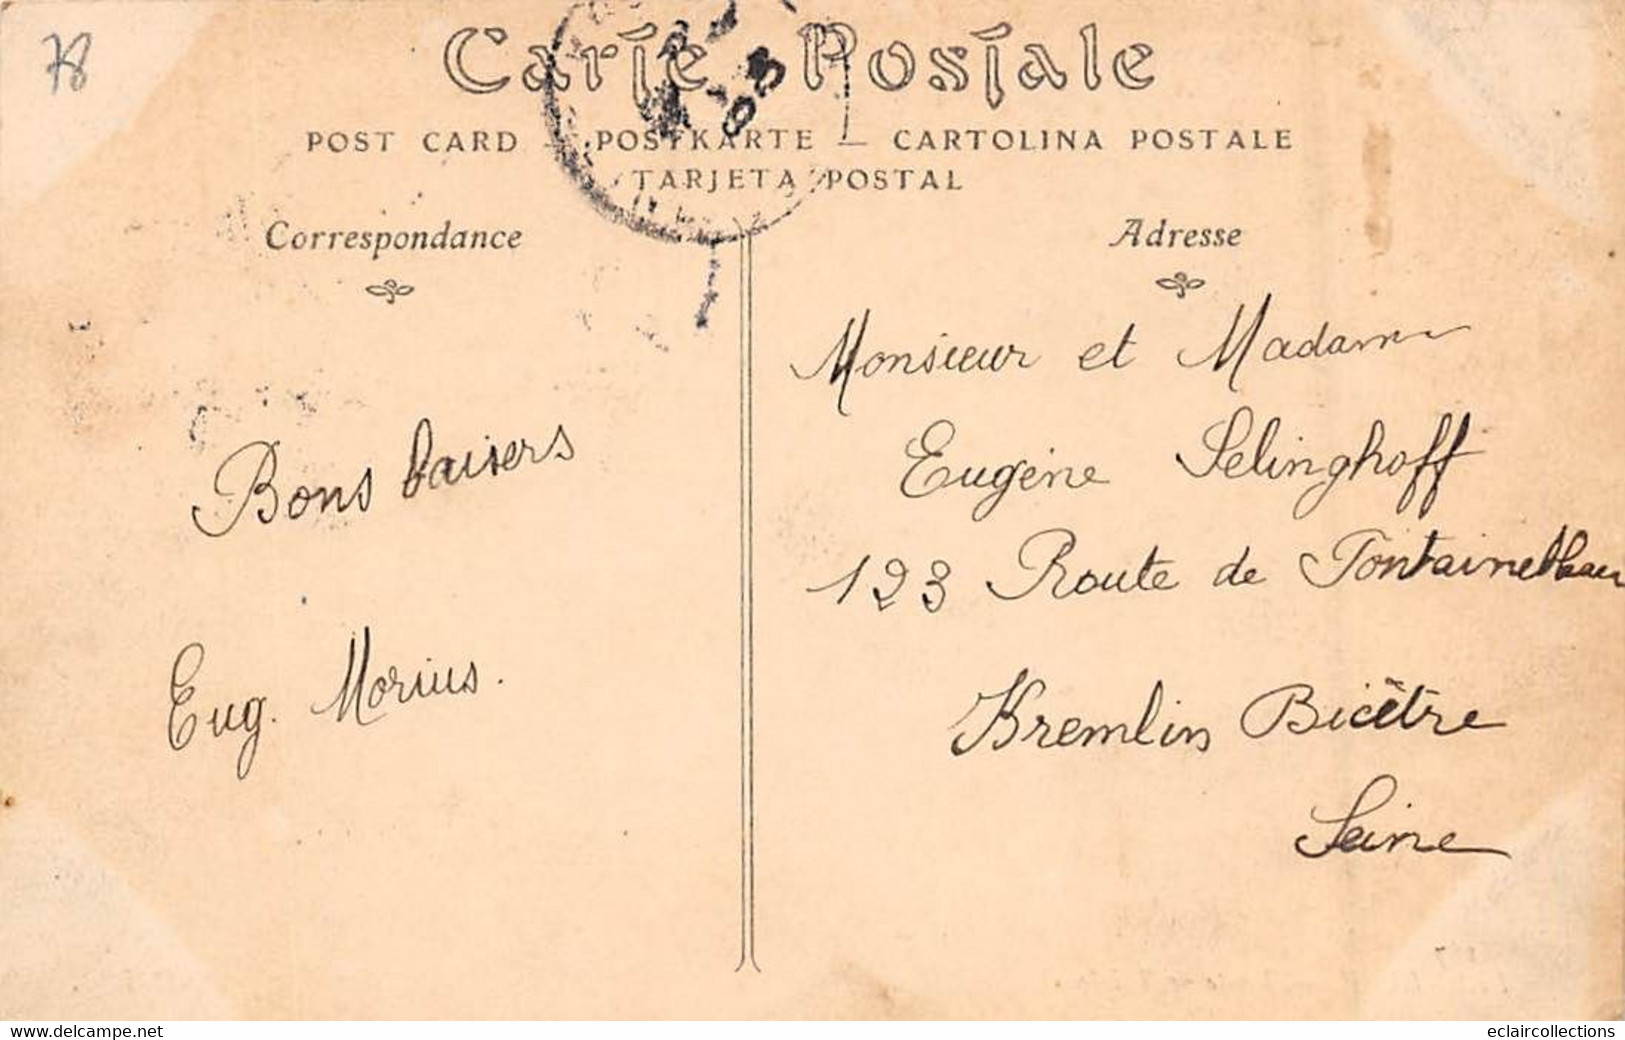 78
Carte Postale
POST CARD — POSTKARTE — CARTOLINA POSTALE
TARJETA POSTAL
Correspondance
Adresse
Monsieur et Madame
Eugène Selinghoff
123 Route de Fontainebleau
Kremlin Bicêtre
Seine
Bons baisers
Eug. Morius.
www.delcampe.net
eclaircollections